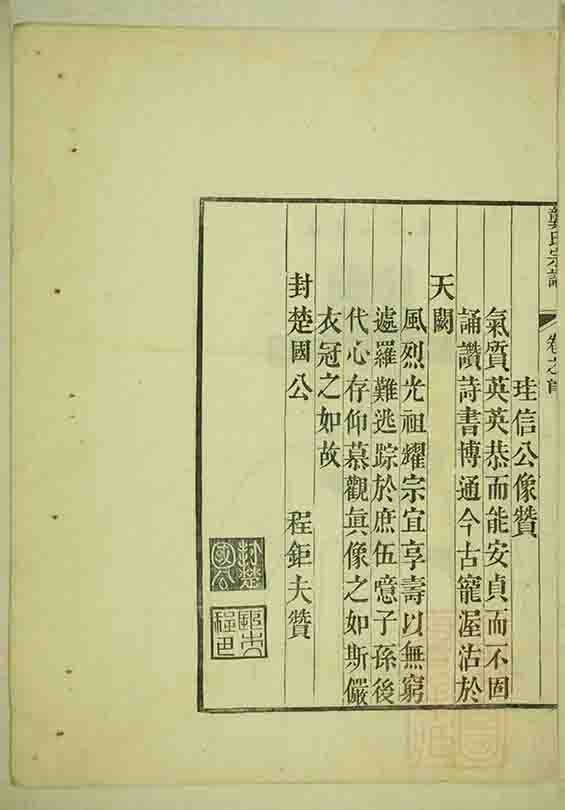 龔氏宗譜
卷之首
珪信公像贊
氣質英英恭而能安貞而不固
誦讚詩書博通今古寵渥沾於
天闕
風烈光祖耀宗宜享壽以無窮
遽羅難逃踪於庶伍噫子孫後
代心存仰慕觀真像之如斯儼
衣冠之如故
封楚國公
程鉅夫贊
封楚國公